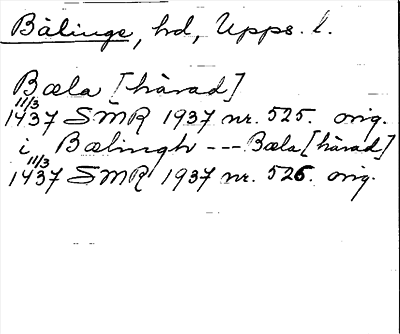 Bälinge, hd, Upps. l.
Bæla [härad]
11/3
1437 SMR 1937 nr. 525. orig.
i Bælingh --- Bæla [härad]
11/3
1437 SMR 1937 nr. 526. orig.